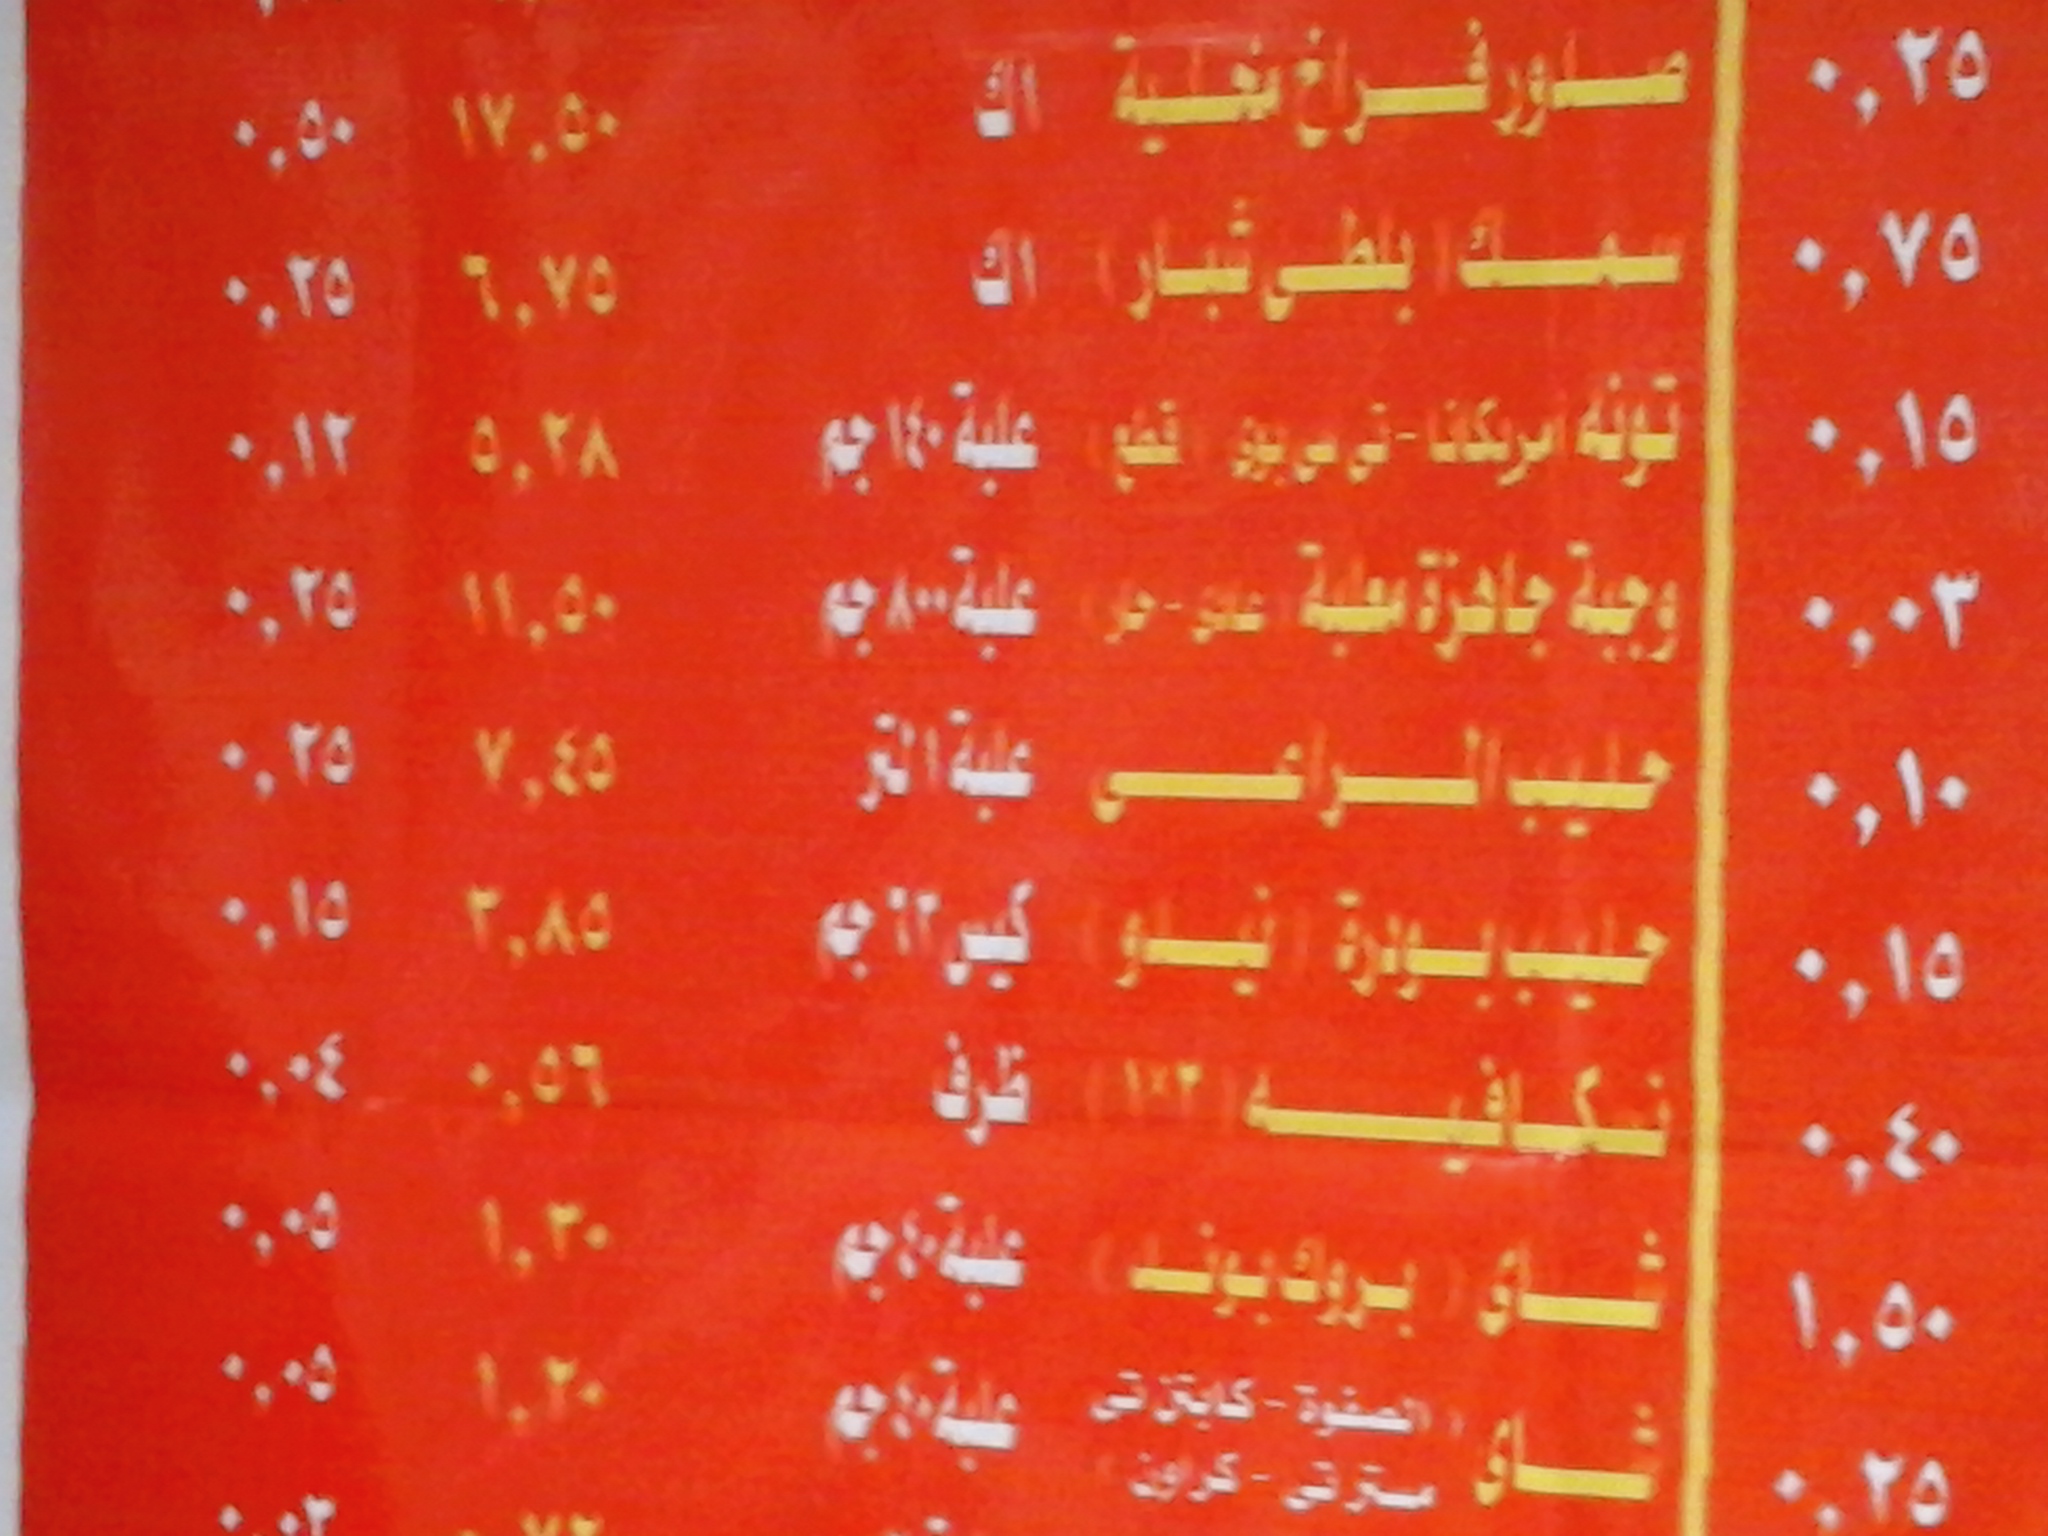 ٠,٢٥
صدور فراخ مخلية ١ك ١٧,٥٠ ٠,٥٠
٠,٧٥
سمك ( بلطى شبار ) ١ك ٦,٧٥ ٠,٢٥
٠,١٥
تونه امريكانا - تى سى بوى ( قطع ) علبة ١٤٠ جم ٥,٢٨ ٠,١٢
٠,٠٣
وجبة جاهزة معلبة ( عادى - حار ) علبة ٨٠٠ جم ١١,٥٠ ٠,٢٥
٠,١٠
حليب المراعى علبة ١ لتر ٧,٤٥ ٠,٢٥
٠,١٥
حليب بودرة ( نيدو ) كيس جم ٣,٨٥ ٠,١٥
٠,٤٠
نسكافيه ( ٣×١ ) ظرف ٠,٥٦ ٠,٠٤
١,٥٠
شاى ( بروك بوند ) علبة ٤٠ جم ١,٣٠ ٠,٠٥
٠,٢٥
شاى ( الصفوة - كابتن تى
مستر تى - كراون ) علبة ٤٠ جم ١,٢٠ ٠,٠٥